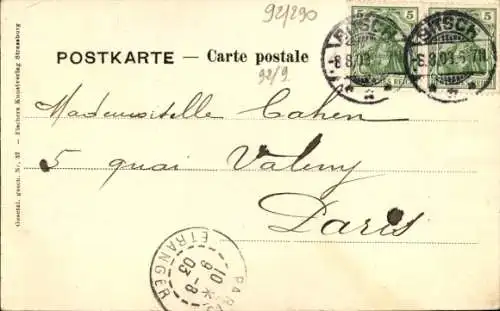 92/290
POSTKARTE — Carte postale
92/9.
5
5
BITSCH
8.8.03
BITSCH
8.8.03
Mademoiselle Cahen
5 quai Valmy
Paris
PARIS
ETRANGER
10
9-8
03
Gesetzl. gesch. Nr. 37 - Fischers Kunstverlag Strassburg